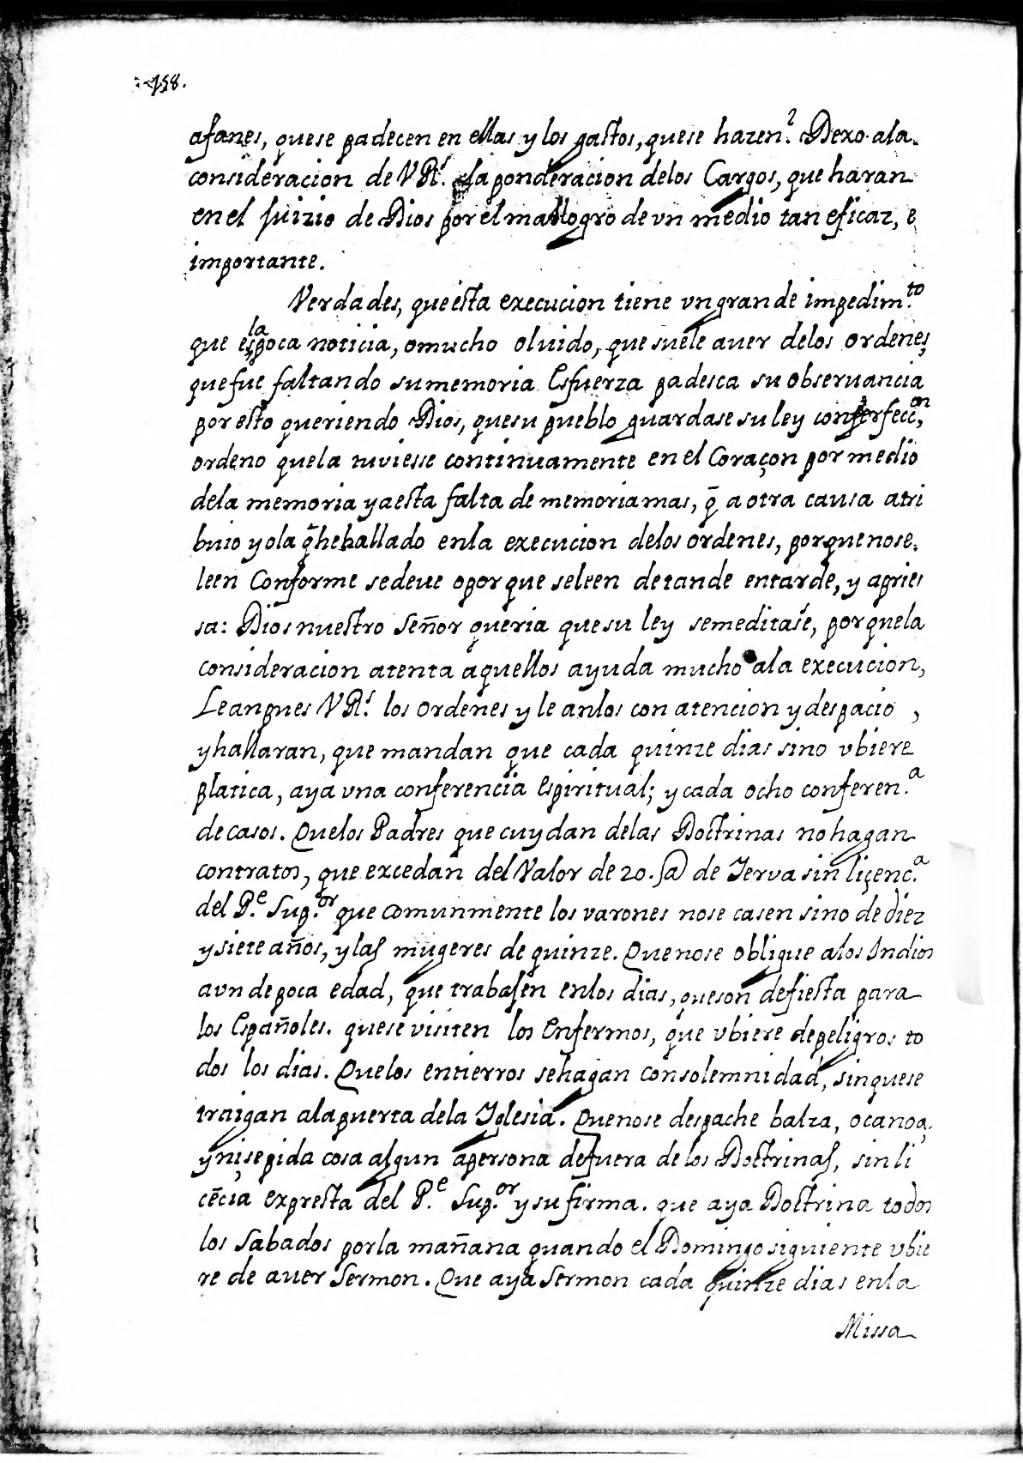 158.
afanes, quese padecen en ellas y los gastos, quese hazen? Dexo ala
consideracion de VRs. la ponderacion delos Cargos, que haran
en el juizio de Dios por el mallogro de vn medio tan eficaz, e
importante.
Verdades, que esta execucion tiene vn grande impedim.to
que es la poca noticia, o mucho oluido, que suele auer delos ordenes
que fue faltando su memoria Esfuerza padesca su obseruancia
por esto queriendo Dios, quesu pueblo guardase su ley con perfecc.on
ordeno quela tuviesse continuamente en el Coraçon por medio
dela memoria y aesta falta de memoria mas, q̄ a otra causa atri
buio yo la q̄ he hallado enla execucion delos ordenes, porque nose
leen Conforme sedeue o por que seleen detande entarde, y apries
sa: Dios nuestro Señor queria quesu ley semeditase, porquela
consideracion atenta aquellos ayuda mucho ala execucion,
Leanpues VRs. los ordenes y leanlos con atencion y despacio,
y hallaran, que mandan que cada quinze dias sino vbiere
platica, aya vna conferencia Espiritual; y cada ocho conferen.a
de casos. Quelos Padres que cuydan delas Doctrinas no hagan
contratos, que excedan del Valor de 20. @ de Yerva sin liçenc.a
del P.e Sup.or que comunmente los varones nose casen sino de diez
y siete años, y las mugeres de quinze. Quenose obligue alos Indios
aun de poca edad, que trabasen enlos dias, queson defiesta para
los Españoles. quese visiten los Enfermos, que vbiere de peligro. to
dos los dias. Quelos entierros sehagan consolemnidad, sinquese
traigan alapuerta dela Yglesia. Quenose despache balza, o canoa,
y nisepida cosa algun apersona defuera de los Doctrinas, sin li
cēcia expressa del P.e Sup.or y su firma. que aya Doctrina todos
los Sabados porla mañana quando el Domingo siguiente vbie
re de auer Sermon. Que aya Sermon cada quinze dias enla
Missa